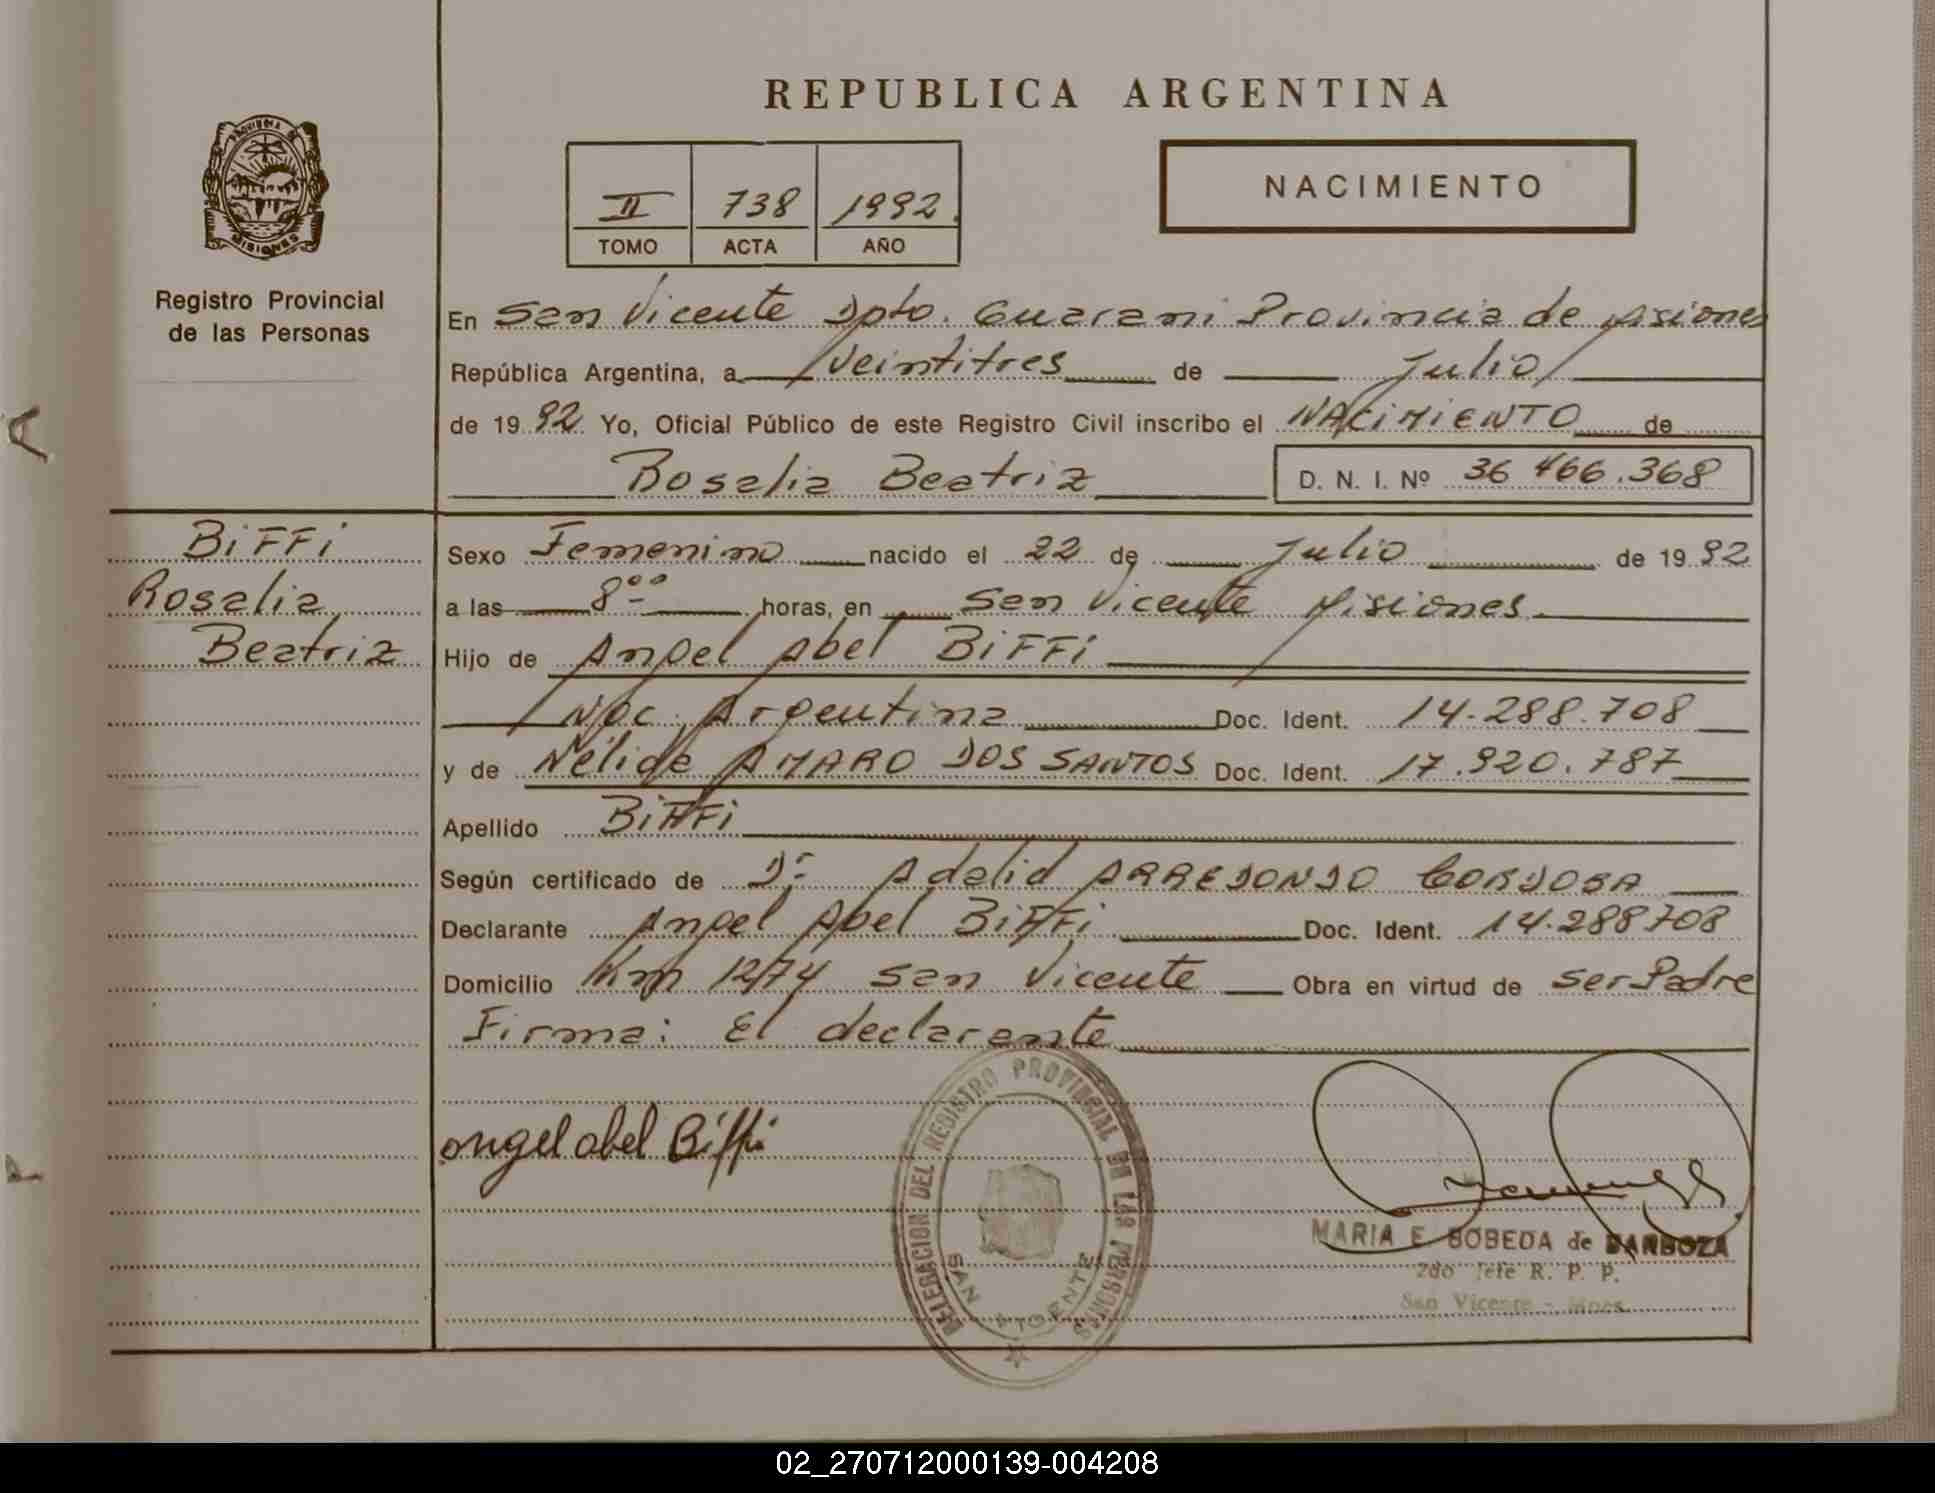 REPUBLICA ARGENTINA
PROVINCIA DE MISIONES
Registro Provincial
de las Personas
II 738 1992
TOMO ACTA AÑO
NACIMIENTO
En San Vicente Dpto. Guarani Provincia de Misiones
República Argentina, a Veintitres de Julio
de 1992 Yo, Oficial Público de este Registro Civil inscribo el NACIMIENTO de
Rosalia Beatriz D. N. I. Nº 36 466.368
BiFFi
Rosalia
Beatriz
Sexo Femenino nacido el 22 de Julio de 1992
a las 8°° horas, en San Vicente Misiones
Hijo de Angel Abel BiFFi
Nac. Argentina Doc. Ident. 14.288.708
y de Nélida AMARO DOS SANTOS Doc. Ident. 17.920.787
Apellido BiFFi
Según certificado de Dr. Adalid ARREDONDO CORDOBA
Declarante Angel Abel BiFFi Doc. Ident. 14.288708
Domicilio Km 1274 San Vicente Obra en virtud de ser Padre
Firma: El declarante
angel abel Biffi
DELEGACION DEL REGISTRO PROVINCIAL DE LAS PERSONAS
SAN VICENTE
MARIA E. BOBEDA de BARBOZA
2do Jefe R. P. P.
San Vicente - Mnes.
02_270712000139-004208